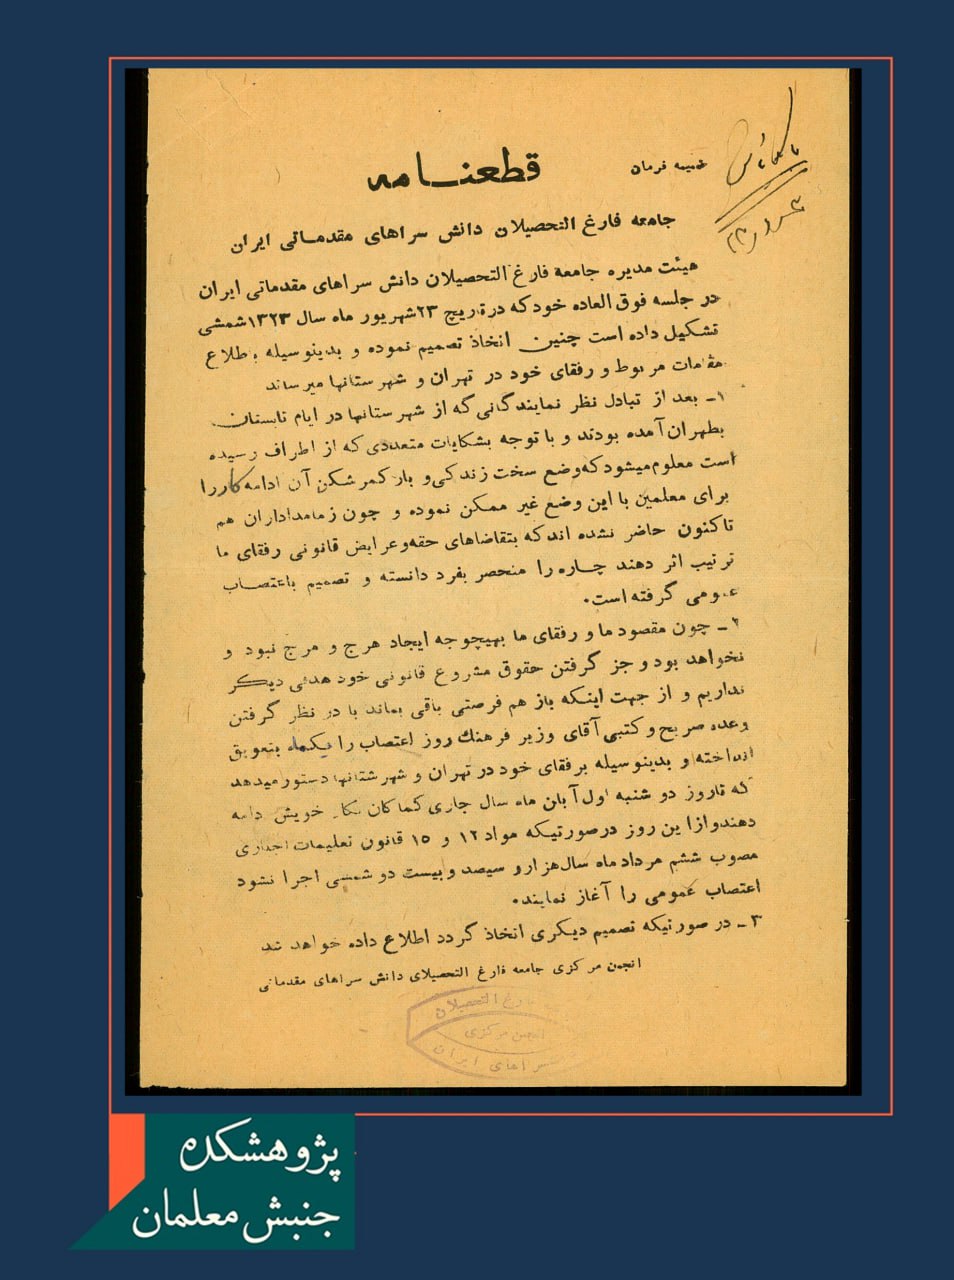 ضمیمه فرمان
قطعنامه
جامعه فارغ التحصیلان دانش سراهای مقدماتی ایران
هیئت مدیره جامعه فارغ التحصیلان دانش سراهای مقدماتی ایران
در جلسه فوق العاده خود که درتاریخ ۲۳شهریور ماه سال ۱۳۲۳شمشی
تشکیل داده است چنین اتخاذ تصمیم نموده و بدینوسیله باطلاع
مقامات مربوط و رفقای خود در تهران و شهرستانها میرساند
۱ـ بعد از تبادل نظر نمایندگانی که از شهرستانها در ایام تابستان
بطهران آمده بودند و با توجه بشکایات متعددی که از اطراف رسیده
است معلوم میشود که وضع سخت زندگی و بار کمرشکن آن ادامه کار را
برای معلمین با این وضع غیر ممکن نموده و چون زمامداران هم
تاکنون حاضر نشده اند که بتقاضاهای حقه و عرایض قانونی رفقای ما
ترتیب اثر دهند چاره را منحصر بفرد دانسته و تصمیم باعتصاب
عمومی گرفته است.
۲ـ چون مقصود ما و رفقای ما بهیچوجه ایجاد هرج و مرج نبود و
نخواهد بود و جز گرفتن حقوق مشروع قانونی خود هدفی دیگر
نداریم و از جهت اینکه باز هم فرصتی باقی بماند با در نظر گرفتن
وعده صریح و کتبی آقای وزیر فرهنك روز اعتصاب را یکماه بتعویق
انداخته و بدینوسیله برفقای خود در تهران و شهرشتانها دستور میدهد
که تاروز دو شنبه اول آبان ماه سال جاری کماکان بکار خویش دامه
دهند و از این روز درصورتیکه مواد ۱۲ و ۱۵ قانون تعلیمات اجباری
مصوب ششم مرداد ماه سال هزار و سیصد و بیست دو شمسی اجرا نشود
اعتصاب عمومی را آغاز نمایند.
۳ـ در صورتیکه تصمیم دیگری اتخاذ گردد اطلاع داده خواهد شد
انجمن مرکزی جامعه فارغ التحصیلای دانش سراهای مقدماتی
فارغ التحصیلان
انجمن مرکزی
سراهای ایران
پژوهشکده
جنبش معلمان